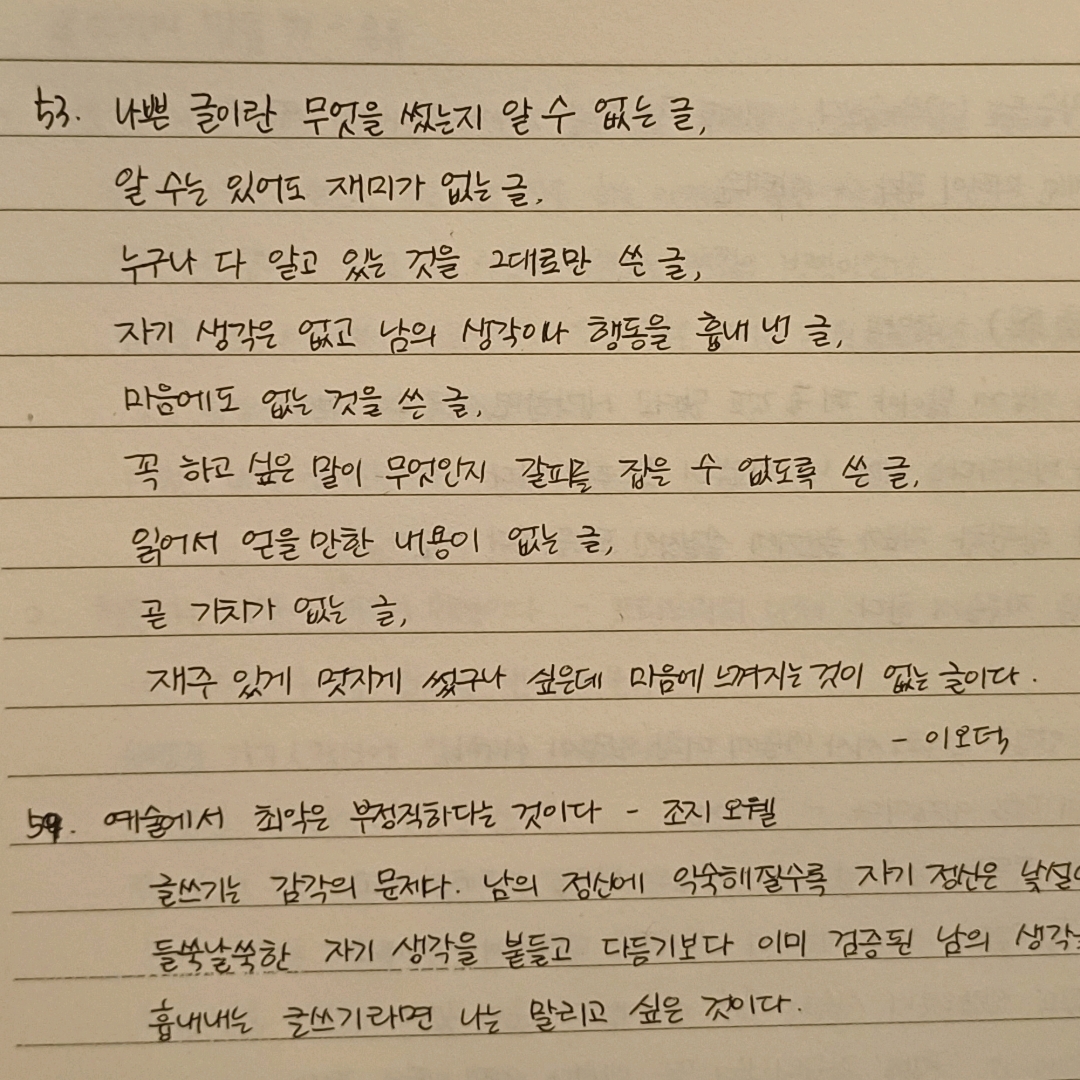 53. 나쁜 글이란 무엇을 썼는지 알 수 없는 글,
알 수는 있어도 재미가 없는 글,
누구나 다 알고 있는 것을 그대로만 쓴 글,
자기 생각은 없고 남의 생각이나 행동을 흉내 낸 글,
마음에도 없는 것을 쓴 글,
꼭 하고 싶은 말이 무엇인지 갈피를 잡을 수 없도록 쓴 글,
읽어서 얻을 만한 내용이 없는 글,
곧 가치가 없는 글,
재주 있게 멋지게 썼구나 싶은데 마음에 느껴지는 것이 없는 글이다.
- 이오덕
54. 예술에서 최악은 부정직하다는 것이다 - 조지 오웰
글쓰기는 감각의 문제다. 남의 정신에 익숙해질수록 자기 정신은 낯설
들쑥날쑥한 자기 생각을 붙들고 다듬기보다 이미 검증된 남의 생각
흉내내는 글쓰기라면 나는 말리고 싶은 것이다.